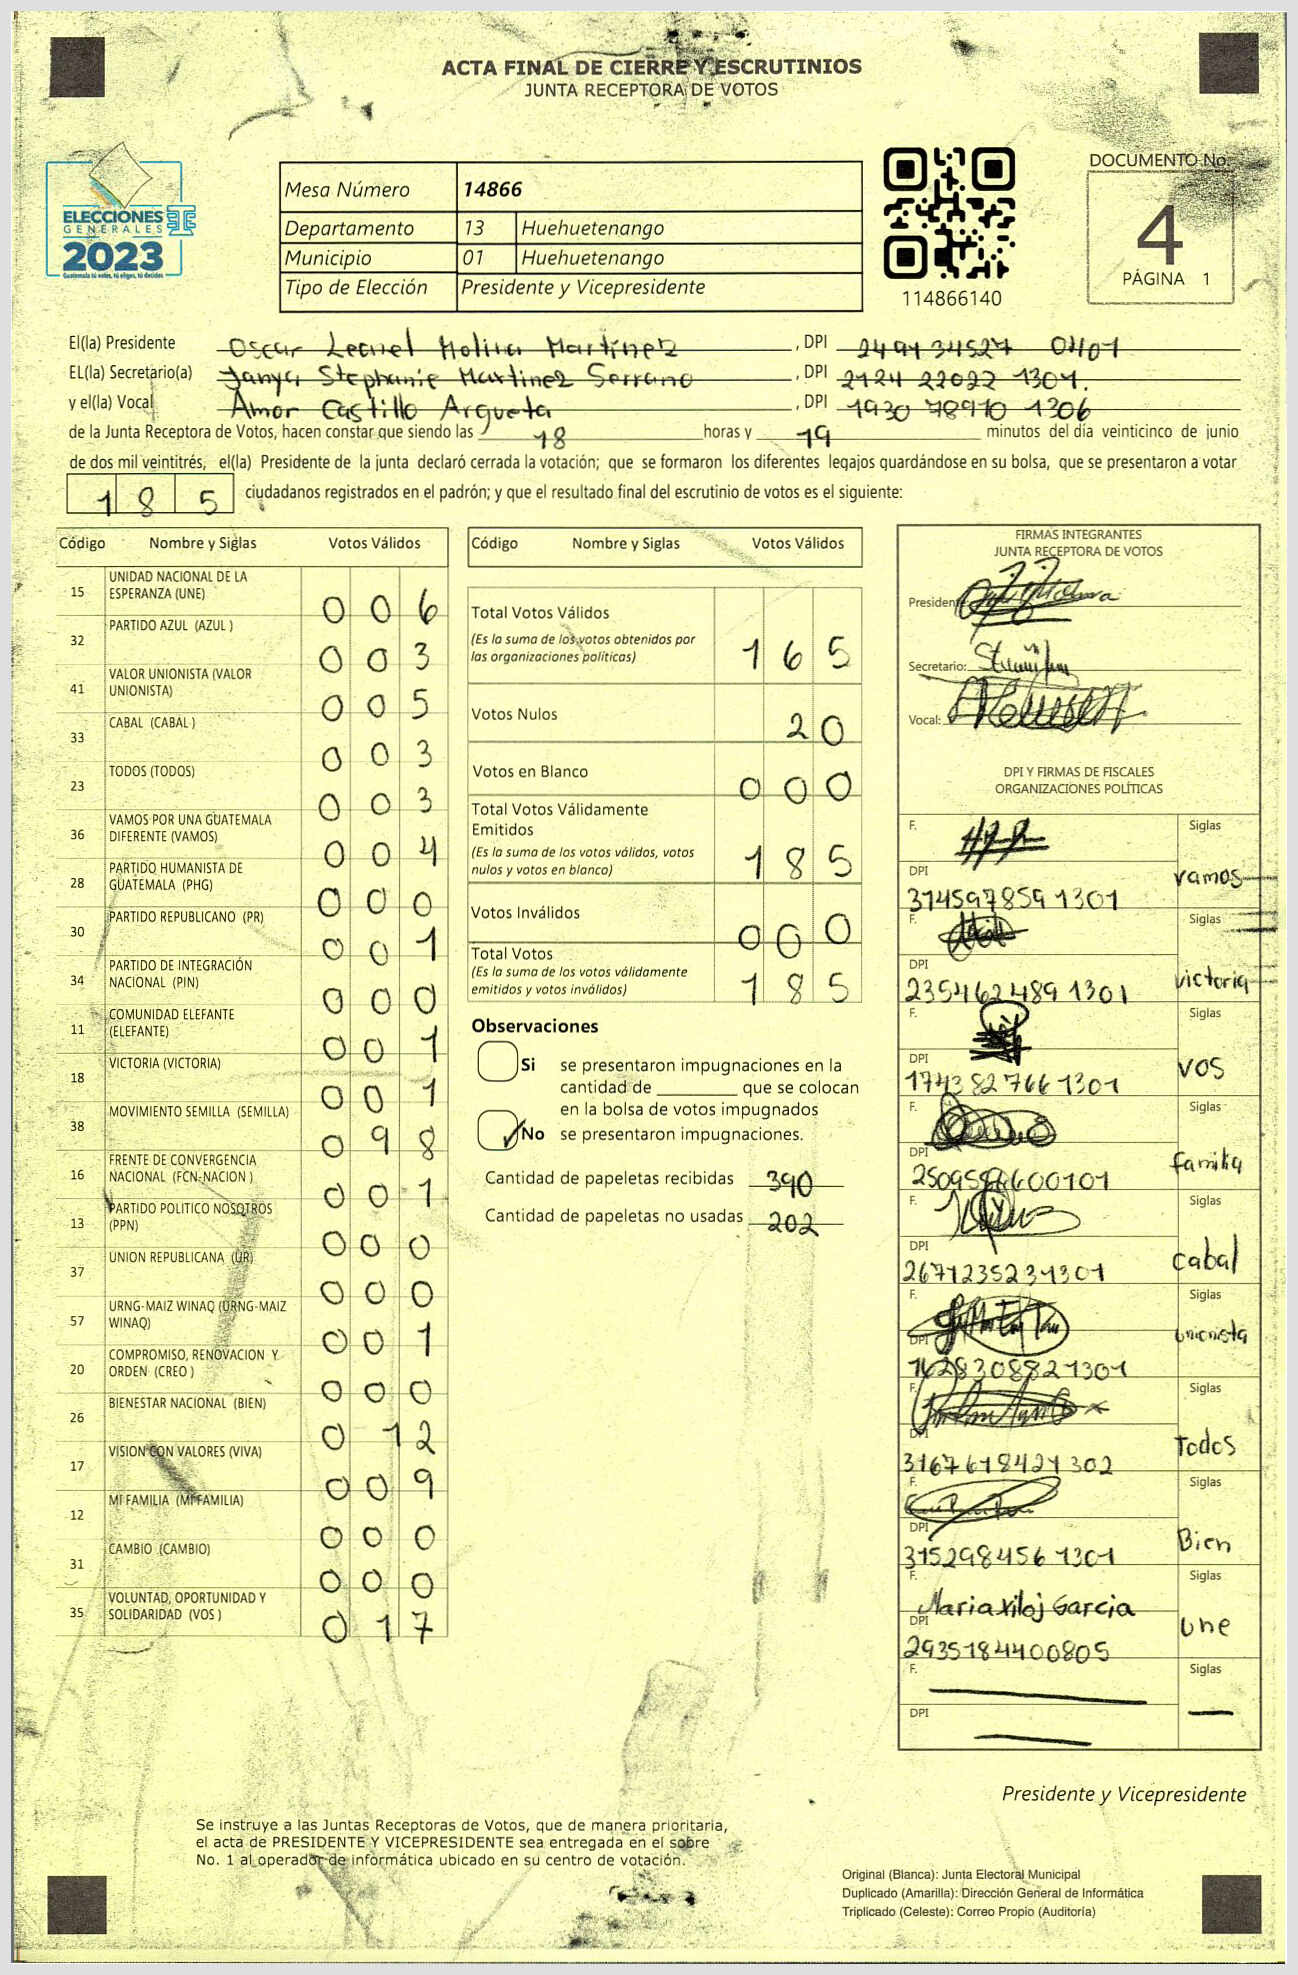 ACTA FINAL DE CIERRE Y ESCRUTINIOS
JUNTA RECEPTORA DE VOTOS
ELECCIONES
GENERALES
2023
Guatemala tú votas, tú eliges, tú decides
Mesa Número 14866
Departamento 13 Huehuetenango
Municipio 01 Huehuetenango
Tipo de Elección Presidente y Vicepresidente
114866140
DOCUMENTO No.
4
PÁGINA 1
El(la) Presidente Oscar Leonel Molina Martínez, DPI 2494 34527 0401
EL(la) Secretario(a) Janya Stephanie Martinez Serrano, DPI 2124 22022 1301.
y el(la) Vocal Amor Castillo Argueta, DPI 1930 78910 1306
de la Junta Receptora de Votos, hacen constar que siendo las 18 horas y 19 minutos del día veinticinco de junio
de dos mil veintitrés, el(la) Presidente de la junta declaró cerrada la votación; que se formaron los diferentes legajos guardándose en su bolsa, que se presentaron a votar
185 ciudadanos registrados en el padrón; y que el resultado final del escrutinio de votos es el siguiente:
Código Nombre y Siglas Votos Válidos
15 UNIDAD NACIONAL DE LA ESPERANZA (UNE) 0 0 6
32 PARTIDO AZUL (AZUL ) 0 0 3
41 VALOR UNIONISTA (VALOR UNIONISTA) 0 0 5
33 CABAL (CABAL ) 0 0 3
23 TODOS (TODOS) 0 0 3
36 VAMOS POR UNA GUATEMALA DIFERENTE (VAMOS) 0 0 4
28 PARTIDO HUMANISTA DE GUATEMALA (PHG) 0 0 0
30 PARTIDO REPUBLICANO (PR) 0 0 1
34 PARTIDO DE INTEGRACIÓN NACIONAL (PIN) 0 0 0
11 COMUNIDAD ELEFANTE (ELEFANTE) 0 0 1
18 VICTORIA (VICTORIA) 0 0 1
38 MOVIMIENTO SEMILLA (SEMILLA) 0 9 8
16 FRENTE DE CONVERGENCIA NACIONAL (FCN-NACION ) 0 0 1
13 PARTIDO POLITICO NOSOTROS (PPN) 0 0 0
37 UNION REPUBLICANA (UR) 0 0 0
57 URNG-MAIZ WINAQ (URNG-MAIZ WINAQ) 0 0 1
20 COMPROMISO, RENOVACION Y ORDEN (CREO ) 0 0 0
26 BIENESTAR NACIONAL (BIEN) 0 1 2
17 VISION CON VALORES (VIVA) 0 0 9
12 MI FAMILIA (MI FAMILIA) 0 0 0
31 CAMBIO (CAMBIO) 0 0 0
35 VOLUNTAD, OPORTUNIDAD Y SOLIDARIDAD (VOS ) 0 1 7
Código Nombre y Siglas Votos Válidos
Total Votos Válidos 1 6 5
(Es la suma de los votos obtenidos por
las organizaciones políticas)
Votos Nulos 2 0
Votos en Blanco 0 0 0
Total Votos Válidamente
Emitidos
(Es la suma de los votos válidos, votos
nulos y votos en blanco) 1 8 5
Votos Inválidos 0 0 0
Total Votos
(Es la suma de los votos válidamente
emitidos y votos inválidos) 1 8 5
Observaciones
Si se presentaron impugnaciones en la
cantidad de ________ que se colocan
en la bolsa de votos impugnados
No se presentaron impugnaciones.
Cantidad de papeletas recibidas 390
Cantidad de papeletas no usadas 202
FIRMAS INTEGRANTES
JUNTA RECEPTORA DE VOTOS
Presidente:
Secretario:
Vocal:
DPI Y FIRMAS DE FISCALES
ORGANIZACIONES POLÍTICAS
F. Siglas
DPI vamos
3145978591301
F. Siglas
DPI victoria
2354624891301
F. Siglas
DPI vos
1743827661301
F. Siglas
DPI familia
F. Siglas
DPI cabal
2671235231301
F. Siglas
DPI unionista
1628308821301
F. Siglas
DPI Todos
3167618421302
F. Siglas
DPI Bien
3152984561301
F. Maria Xiloj Garcia Siglas
DPI une
2935184400805
F. Siglas
DPI
Presidente y Vicepresidente
Se instruye a las Juntas Receptoras de Votos, que de manera prioritaria,
el acta de PRESIDENTE Y VICEPRESIDENTE sea entregada en el sobre
No. 1 al operador de informática ubicado en su centro de votación.
Original (Blanca): Junta Electoral Municipal
Duplicado (Amarilla): Dirección General de Informática
Triplicado (Celeste): Correo Propio (Auditoría)